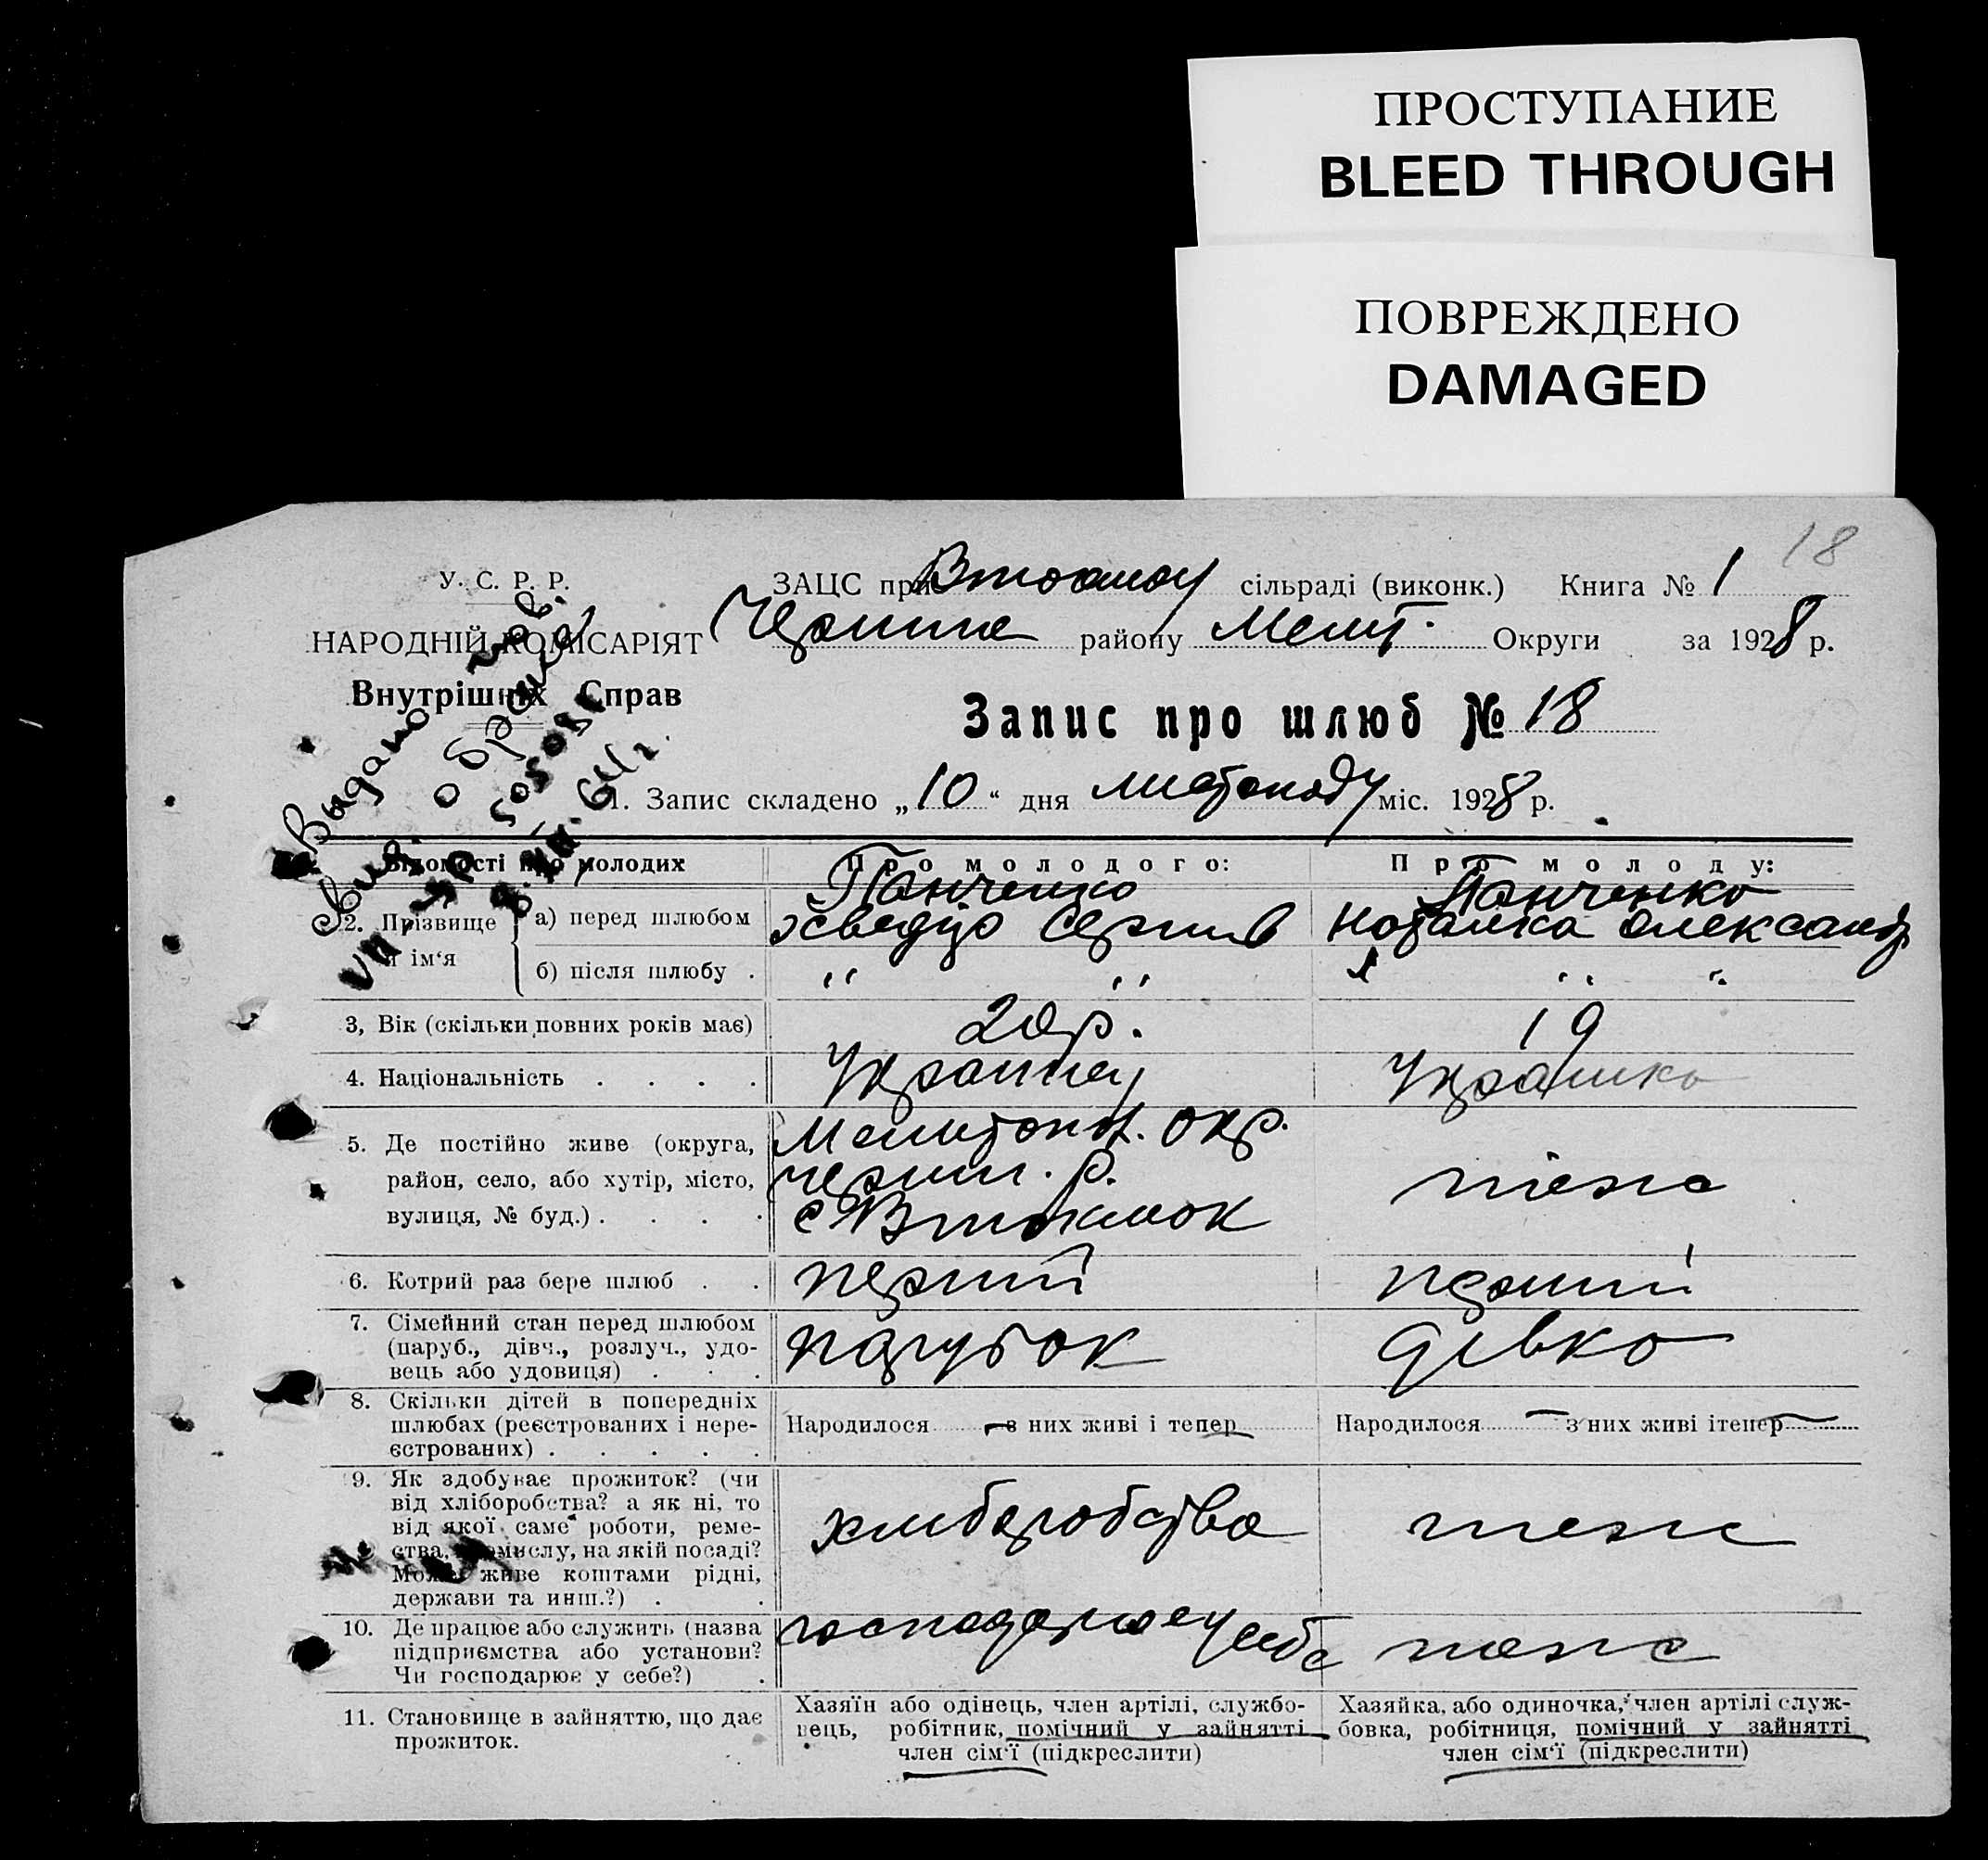 ПРОСТУПАНИЕ
BLEED THROUGH
ПОВРЕЖДЕНО
DAMAGED
18
У. С. Р. Р.
НАРОДНІЙ КОМІСАРІЯТ
Внутрішніх Справ
ЗАЦС при сільраді (виконк.) Книга № 1
району Меліт. Округи за 1928 р.
Запис про шлюб № 18
1. Запис складено „10“ дня листопаду міс. 1928 р.
Выдано
Відомості про молодих
Про молодого:
Про молоду:
2. Прізвище й ім‘я
а) перед шлюбом
Панченко
Сергиів
Панченко
Наталка Олександр
б) після шлюбу .
" "
" "
3, Вік (скільки повних років має)
20 р.
19
4. Національність . . . .
Українец
Українка
5. Де постійно живе (округа,
район, село, або хутір, місто,
вулиця, № буд.) . . . .
Мелитопол. окр.
черни. р.
с Втокмок
теж
6. Котрий раз бере шлюб . .
перший
перший
7. Сімейний стан перед шлюбом
(паруб., дівч., розлуч., удо-
вець або удовиця) . . .
парубок
дівка
8. Скільки дітей в попередніх
шлюбах (реєстрованих і нере-
єстрованих) . . . . .
Народилося — з них живі і тепер —
Народилося — з них живі ітепер —
9. Як здобуває прожиток? (чи
від хліборобства? а як ні, то
від якої саме роботи, реме-
ства, промислу, на якій посаді?
Може живе коштами рідні,
держави та инш.?) . .
хлиборобства
10. Де працює або служить (назва
підприємства або установи?
Чи господарює у себе?) .
господарює у себе
11. Становище в зайняттю, що дає
прожиток.
Хазяїн або одінець, член артілі, службо-
вець, робітник, помічний у зайнятті
член сім‘ї (підкреслити)
Хазяйка, або одиночка, член артілі служ-
бовка, робітниця, помічний у зайнятті
член сім‘ї (підкреслити)